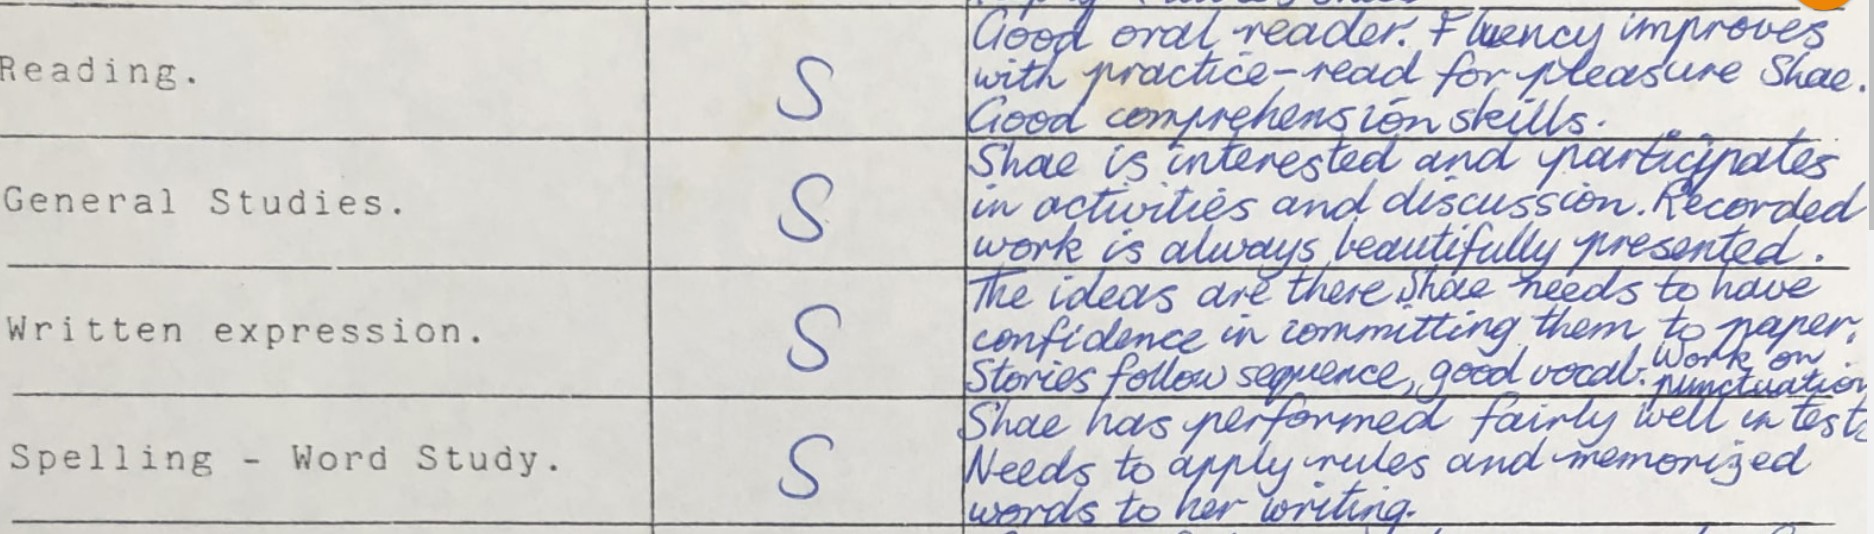 Reading.
S
Good oral reader. Fluency improves
with practice-read for pleasure Shae.
Good comprehension skills.
General Studies.
S
Shae is interested and participates
in activities and discussion. Recorded
work is always beautifully presented.
Written expression.
S
The ideas are there Shae needs to have
confidence in committing them to paper.
Stories follow sequence, good vocab. Work on
punctuation
Spelling - Word Study.
S
Shae has performed fairly well in tests
Needs to apply rules and memorized
words to her writing.